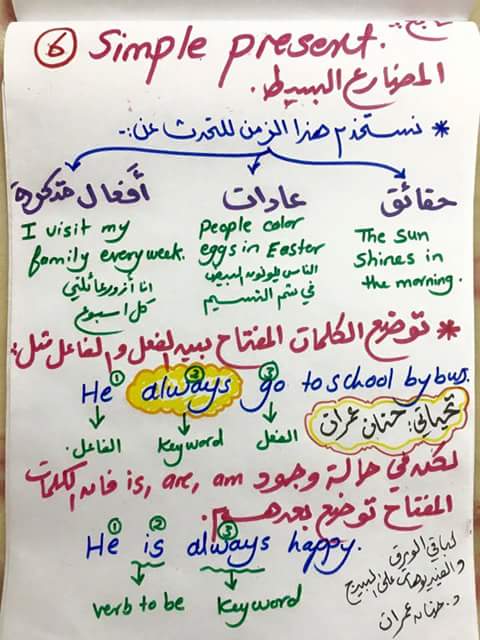 تابع:
6 Simple present.
المضارع البسيط.
* نستخدم هذا الزمن للتحدث عن:-
حقائق
عادات
أفعال متكررة
The sun
shines in
the morning.
People color
eggs in Easter
الناس يلونون البيض
في شم النسيم
I visit my
family every week.
انا أزور عائلتي
كل اسبوع
* توضع الكلمات المفتاح بين الفعل والفاعل مثل:
1 2 3
He always go to school by bus.
الفاعل. keyword الفعل
تحياتي: حنان عمران
لكن في حالة وجود is, are, am فان الكلمات
المفتاح توضع بعدهم.
1 2 3
He is always happy.
verb to be keyword
لباقي الورق
والفيديوهات على البيدج
د. حنان عمران